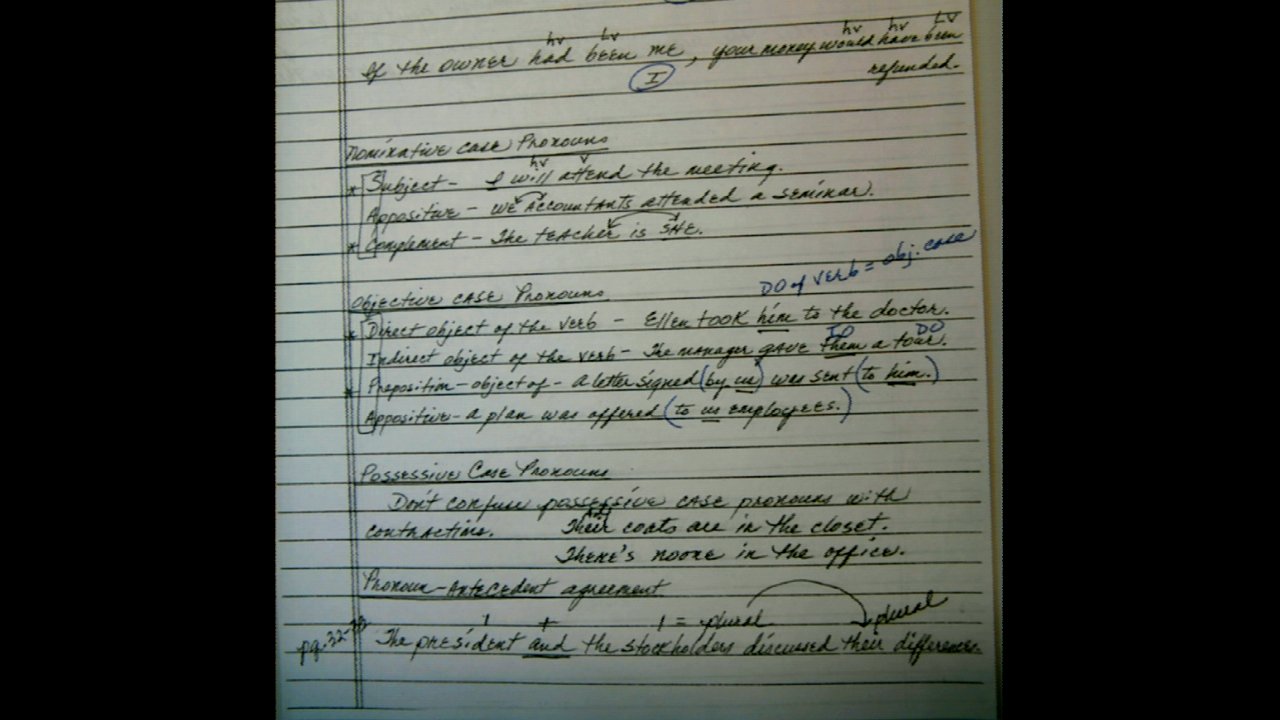 hv Lv hv hv Lv
If the owner had been me, your money would have been
I refunded.
Nominative Case Pronouns
hv v
* Subject - I will attend the meeting.
Appositive - we accountants attended a seminar.
* Complement - The teacher is SHE.
DO of verb = obj. case
Objective Case Pronouns
* Direct object of the verb - Ellen took him to the doctor.
IO DO
Indirect object of the verb - The manager gave them a tour.
* Preposition - object of - a letter signed (by us) was sent (to him.)
Appositive - a plan was offered (to us employees.)
Possessive Case Pronouns
Don't confuse possessive case pronouns with
contractions. Their coats are in the closet.
There's noone in the office.
Pronoun-Antecedent agreement
1 + 1 = plural plural
pg. 32- The president and the stockholders discussed their differences.